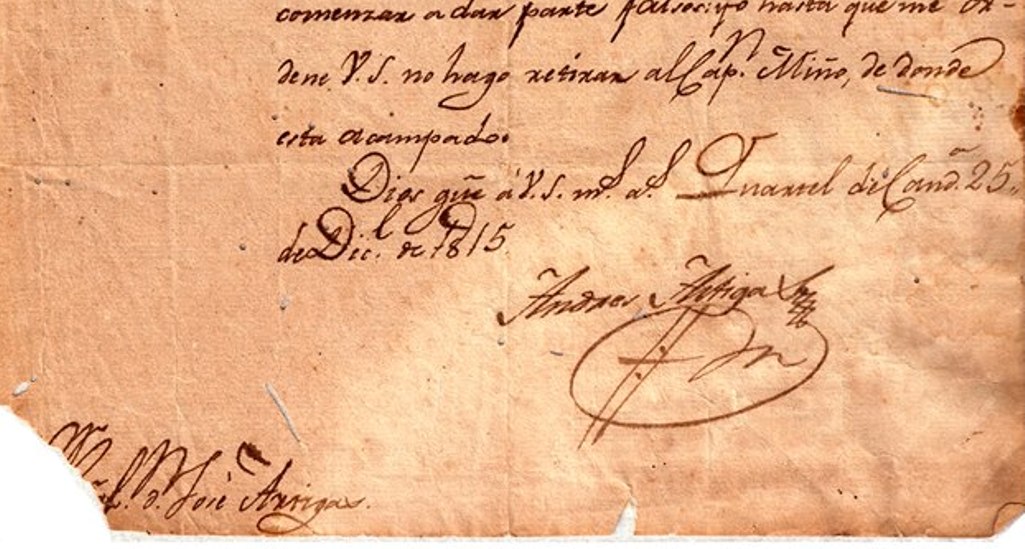 comenzar a dar parte falsos: yo hasta que me or-
dene V.S. no hago retirar al Cap.n Miño, de donde
esta acampado.
Dios gũe á V.S. m.s a.s Quartel de Cand.a 25,,
de Dic.e de 1815
Andres Artigas
D. José Artigas.